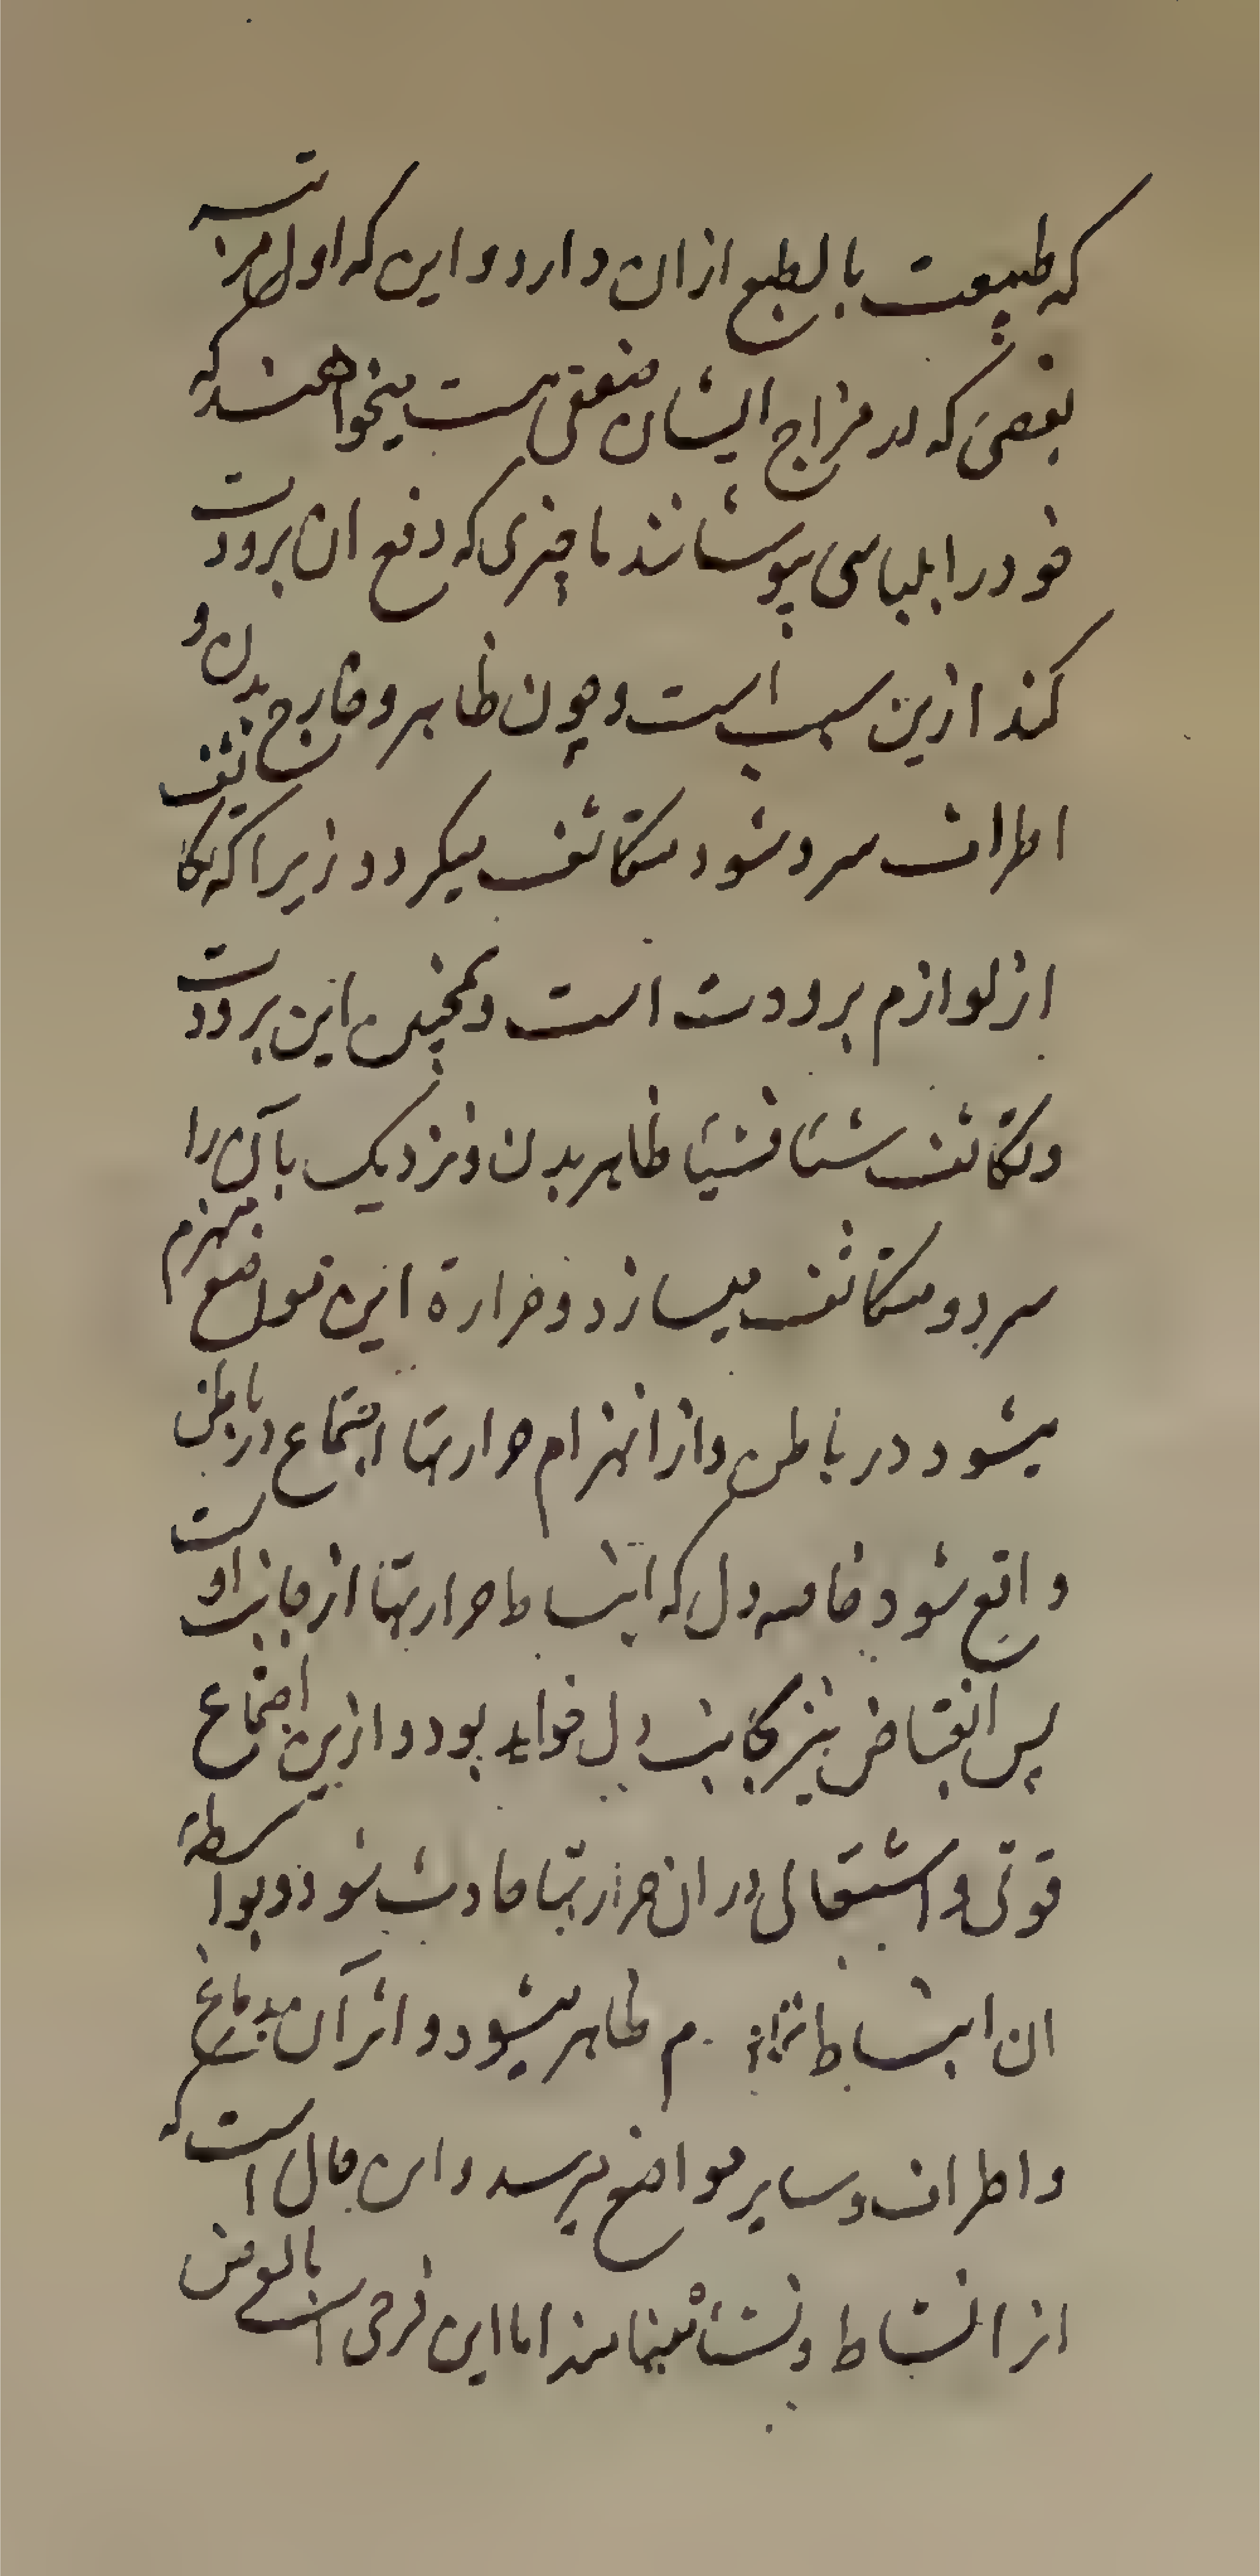 که طبیعت بالطبع ازان دارد و این که اول مرتبه
بعضی که در مزاج ایشان ضعفی هست میخواهند که
خود را بلباسی بپوشانند یا چیزی که دفع ان برودت
کند ازین سبب است و چون ظاهر و خارج بدن و
اطراف سرد شود متکاثف میکردد زیرا که تکاثف
از لوازم برودت است و همچنین این برودت
و تکاثف شیئا فشیئا ظاهر بدن و نزدیک بآن را
سرد و متکاثف میسازد و حرارة این مواضع منهزم
میشود در باطن و از انهزام حرارتها اجتماع در باطن
واقع شود خاصه دل که انبساط حرارتها از جانب اوست
پس انقباض نیز بجانب دل خواهد بود و ازین اجتماع
قوتی و اشتعالی در ان حرارتها حادث شود و بواسطه
ان انبساط ظاهر میشود و اثر آن بدماغ
و اطراف و سایر مواضع میرسد و این حال است که
از انبساط و نشأه مینامند اما این فرحی است بالعرض